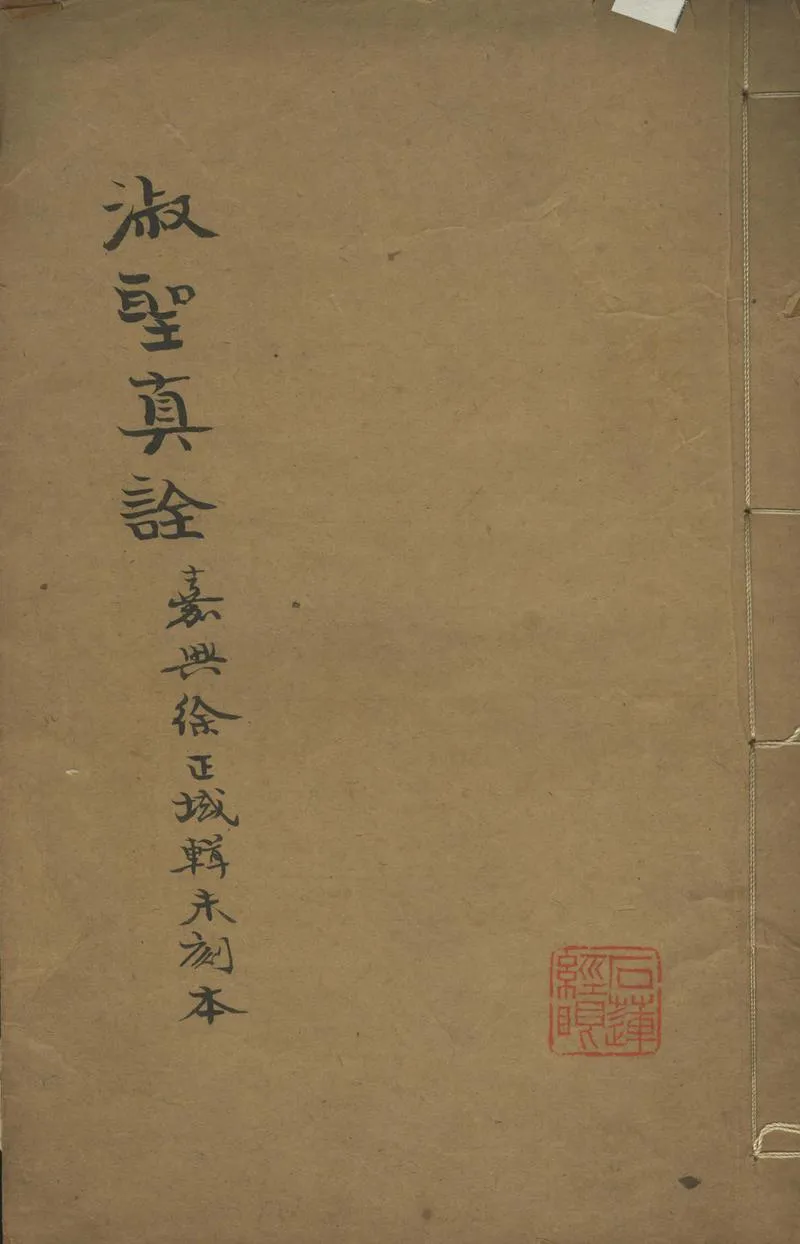 淑聖真詮
嘉興徐正域輯未刻本
石蓮
經眼